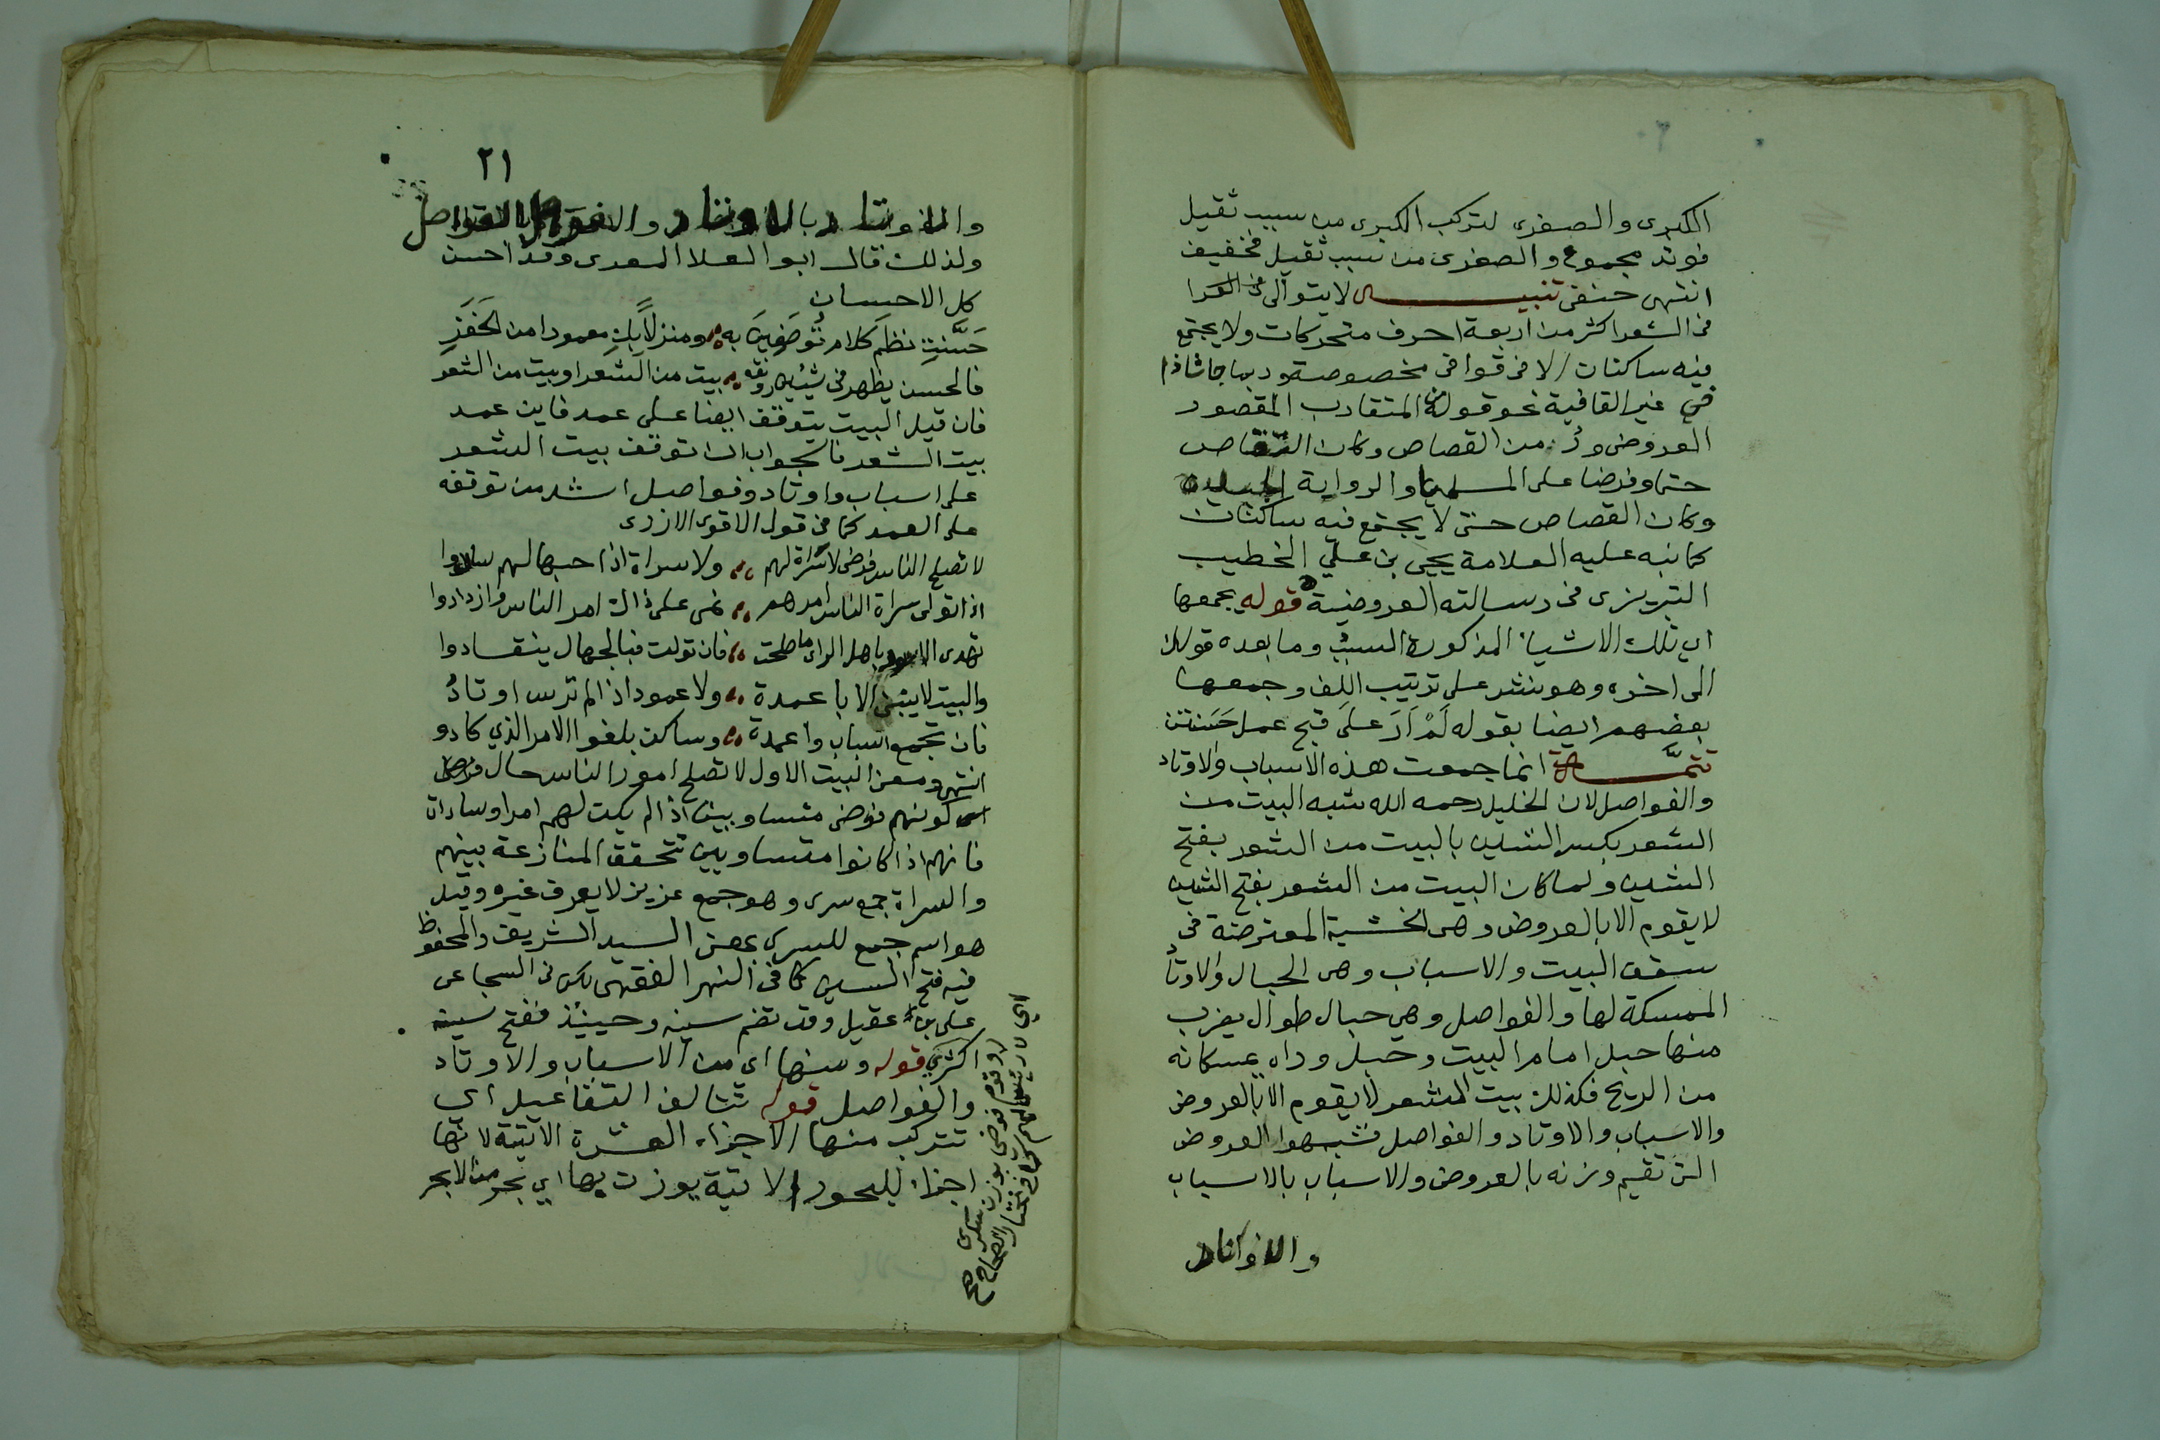 الكبرى والصغرى لتركب الكبرى من سبب ثقيل
فوتد مجموع والصغرى من سبب ثقيل فخفيف
انتهى حنفى تنبيه لا يتوالى
فى الشعر اكثر من اربعة احرف متحركات ولا يجتمع
فيه ساكنان الا فى قوافى مخصوصة وربما جاء شاذا
في غير القافية نحو قوله من المتقارب المقصور
العروض ورُ من القصاص وكان التقاص
حتما وفرضا على المسلمينا والرواية الجيدة
وكان القصاص حتى لا يجتمع فيه ساكنان
كما نبه عليه العلامة يحيى بن علي الخطيب
التبريزى فى رسالته العروضية قوله يجمعها
اي تلك الاشياء المذكورة السبب وما بعده قولك
الى اخره وهو نشر على ترتيب اللف وجمعها
بعضهم ايضا بقوله لَمْ اَرَ عَلَى قبح عمل حَسَنتن
تتمَّة انما جمعت هذه الاسباب والاوتاد
والفواصل لان الخليل رحمه الله شبه البيت من
الشعر بكسر الشين بالبيت من الشعر بفتح
الشين ولما كان البيت من الشعر بفتح الشين
لا يقوم الا بالعروض وهى الخشبة المعترضة فى
سقف البيت والاسباب وهى الحبال والاوتاد
الممسكة لها والفواصل وهي حبال طوال يضرب
منها حبل امام البيت وحبل وراه يمسكانه
من الريح فكذلك بيت الشعر لا يقوم الا بالعروض
والاسباب والاوتاد والفواصل فشبهوا العروض
التى تقيم وزنه بالعروض والاسباب بالاسباب
والاوتاد
٢١
والاوتاد بالاوتاد والفواصل بالفواصل
ولذلك قال ابو العلا المعرى وقد احسن
كل الاحسان
حَسَّنتِ نظمَ كلام تُوصَفِينَ به ومنزلاً بكِ معمورا من الخَفَرِ
فالحسن يظهر فى شيئين رونقه بيت من الشعر او بيت من الشعر
فان قيل البيت يتوقف ايضا على عمد فاين عمد
بيت الشعر فالجواب ان توقف بيت الشعر
على اسباب واوتاد وفواصل اشد من توقفه
على العمد كما فى قول الافوى الازرى
لا تصلح الناس فوضى لا سَراة لهم ولا سراة اذا جهالهم سادوا
اذا تولى سراة الناس امرهم نمى على ذاك امر الناس فازدادوا
تهدى الامور باهل الراى ما صلحت فان تولت فبالجهال ينقادوا
والبيت لا يبتنى الا باعمدة ولا عمود اذا لم ترس اوتادُ
فان تجمع اسباب واعمدة وساكن بلغوا الامر الذي كادو
انتهى ومعنى البيت الاول لا تصلح امور الناس حال فوضى
اى كونهم فوضى متساويين اذا لم يكن لهم امرا وسادات
فانهم اذا كانوا متساويين تتحقق المنازعة بينهم
والسراة جمع سرى وهو جمع عزيز لا يعرف غيره وقيل
هو اسم جمع للسري بمعنى السيد الشريف والمحفوظ
فيه فتح السين كما فى النهر الفقهى لكن فى السجاعى
على بن عقيل وقد تضم سينه وحينئذ ففتح سينه
اكثري قوله ومنها اى من الاسباب والاوتاد
والفواصل قوله تتالف التفاعيل اي
تتركب منها الاجزاء العشرة الاتية لانها
اجزاء للبحور الاتية يوزن بها اي بحر من الابحر
اي لا رئيس لهم كما فى مختار الصحاح
وقوم فوضى بوزن سكرى
صح